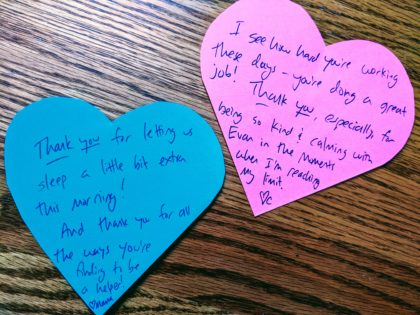 Thank you for letting us
sleep a little bit extra
this morning!
And thank you for all
the ways you're
finding to be
a helper!
♡Mama
I see how hard you're working
these days - you're doing a great
job! Thank you, especially, for
being so kind & calming with
Evan in the moments
when I'm reaching
my limit.
♡C